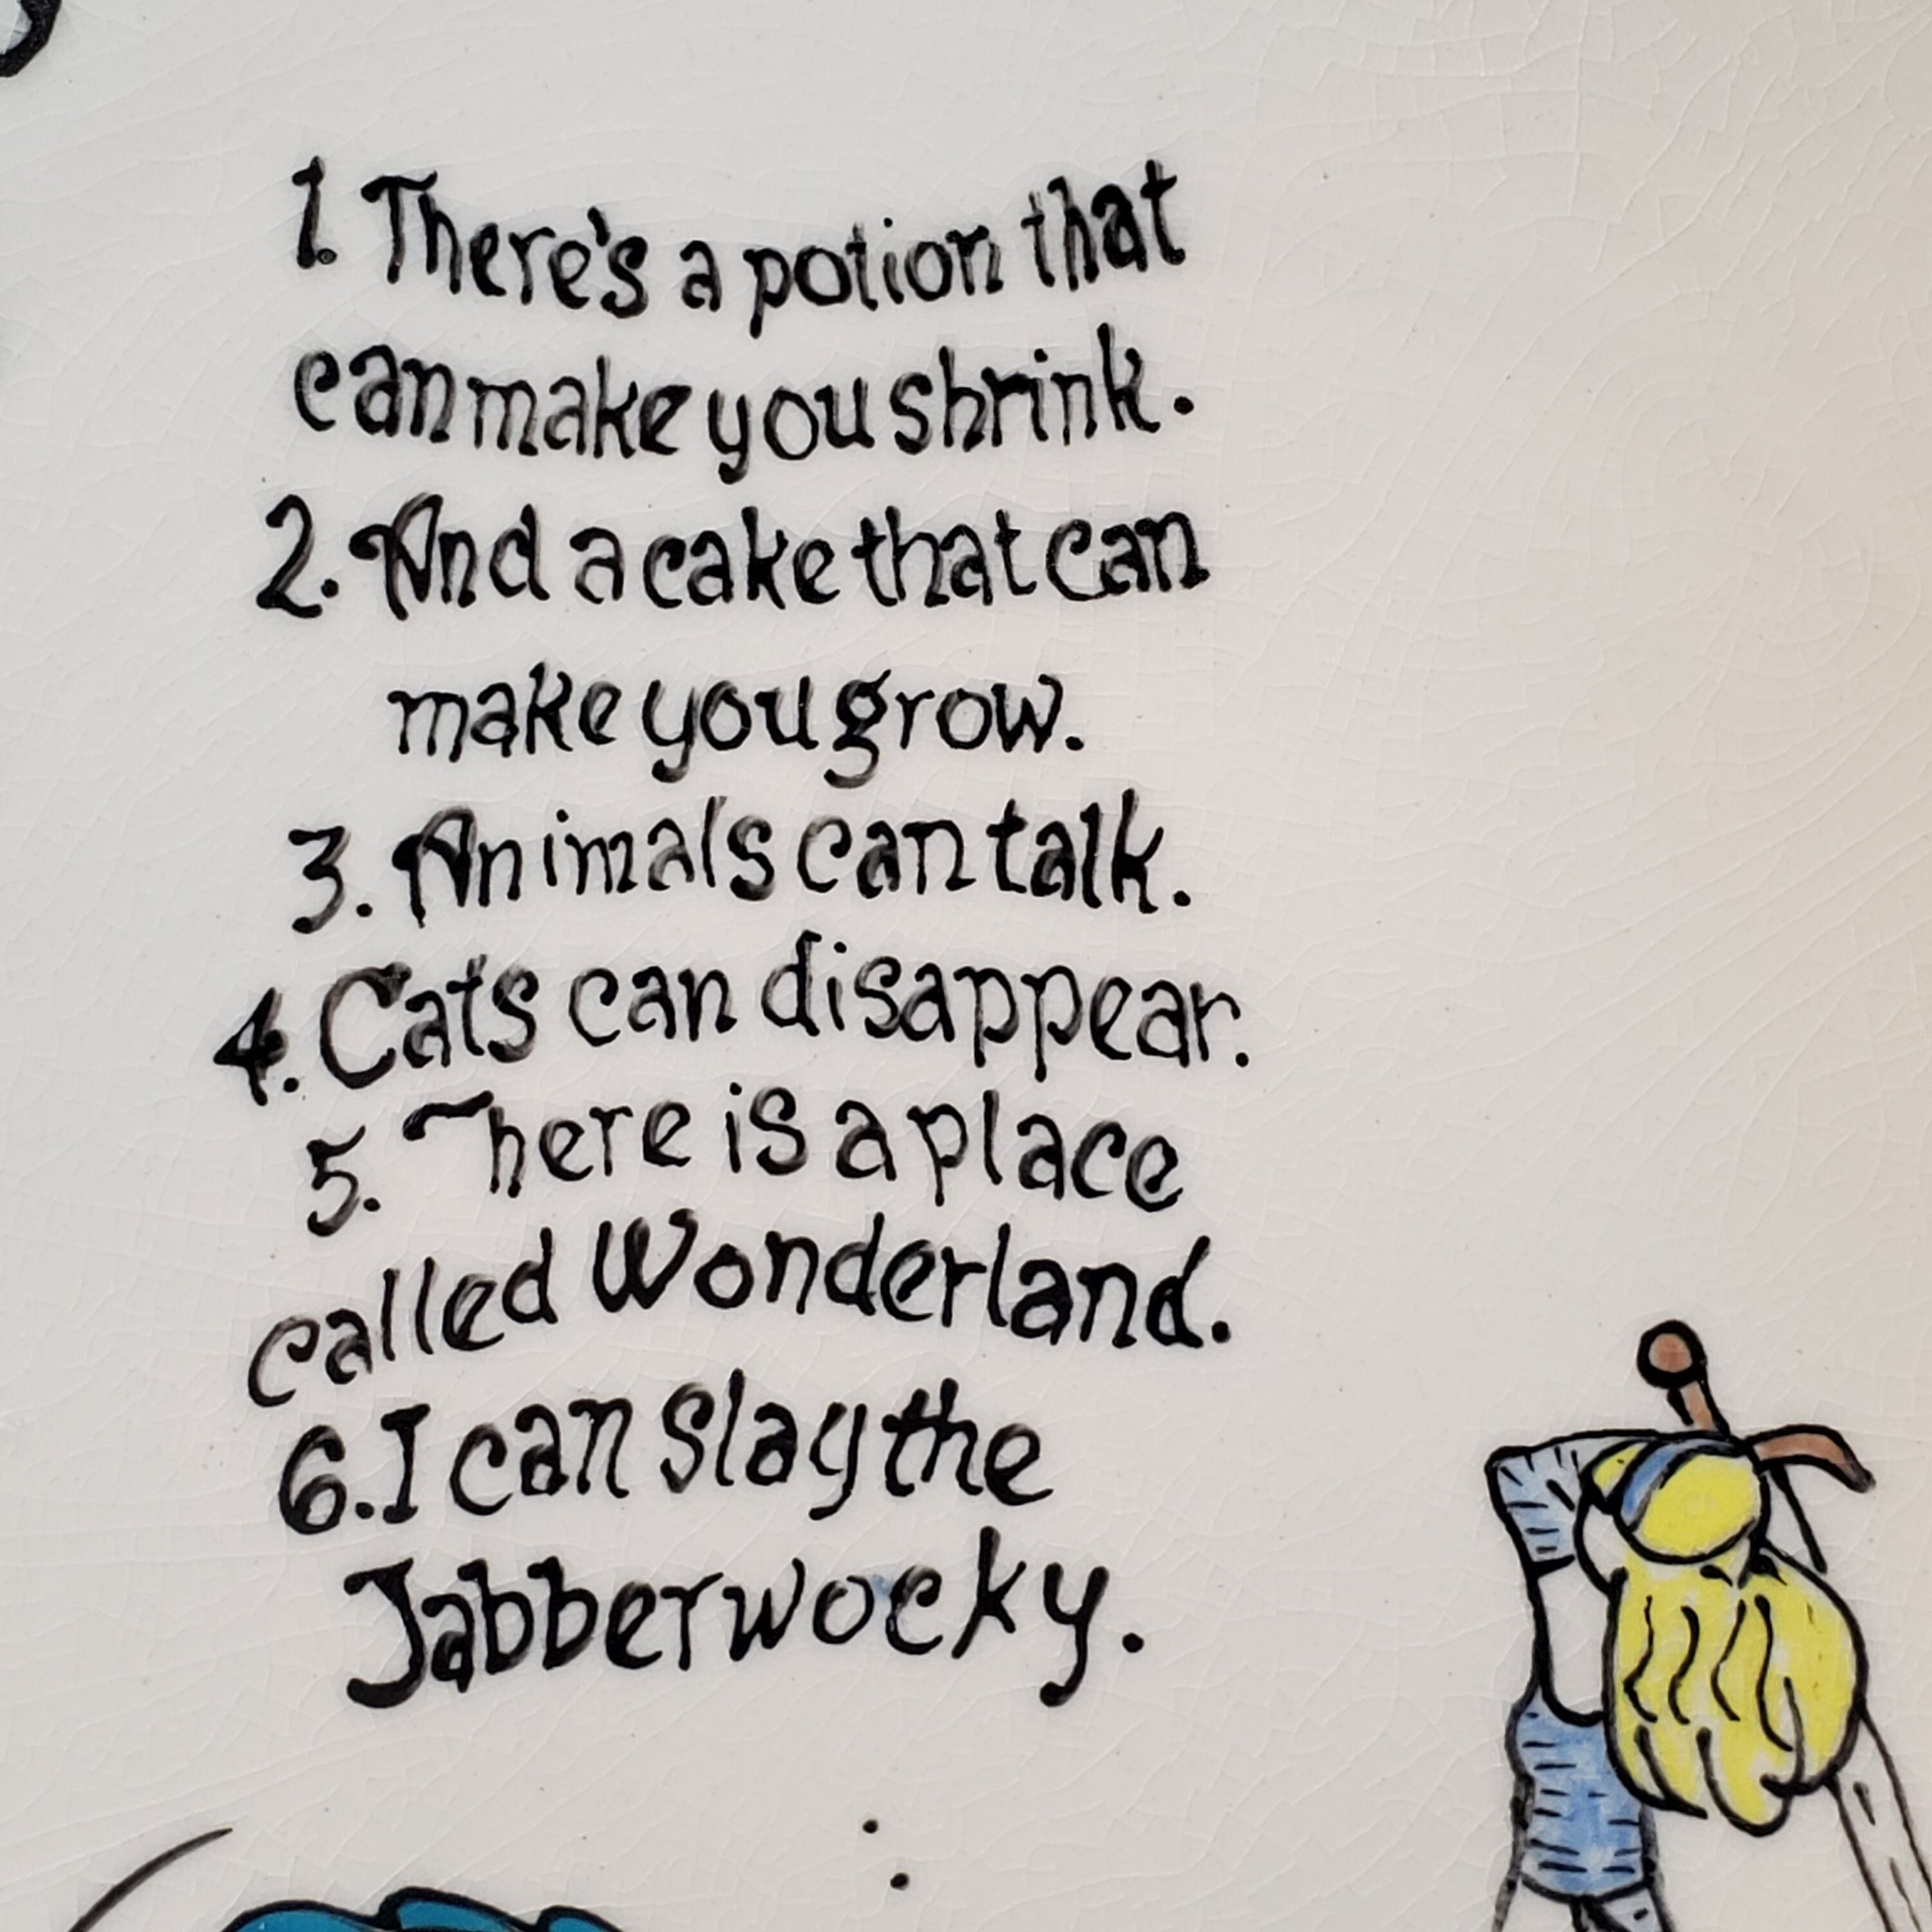 1. There's a potion that
can make you shrink.
2. And a cake that can
make you grow.
3. Animals can talk.
4. Cats can disappear.
5. There is a place
called Wonderland.
6. I can slay the
Jabberwocky.